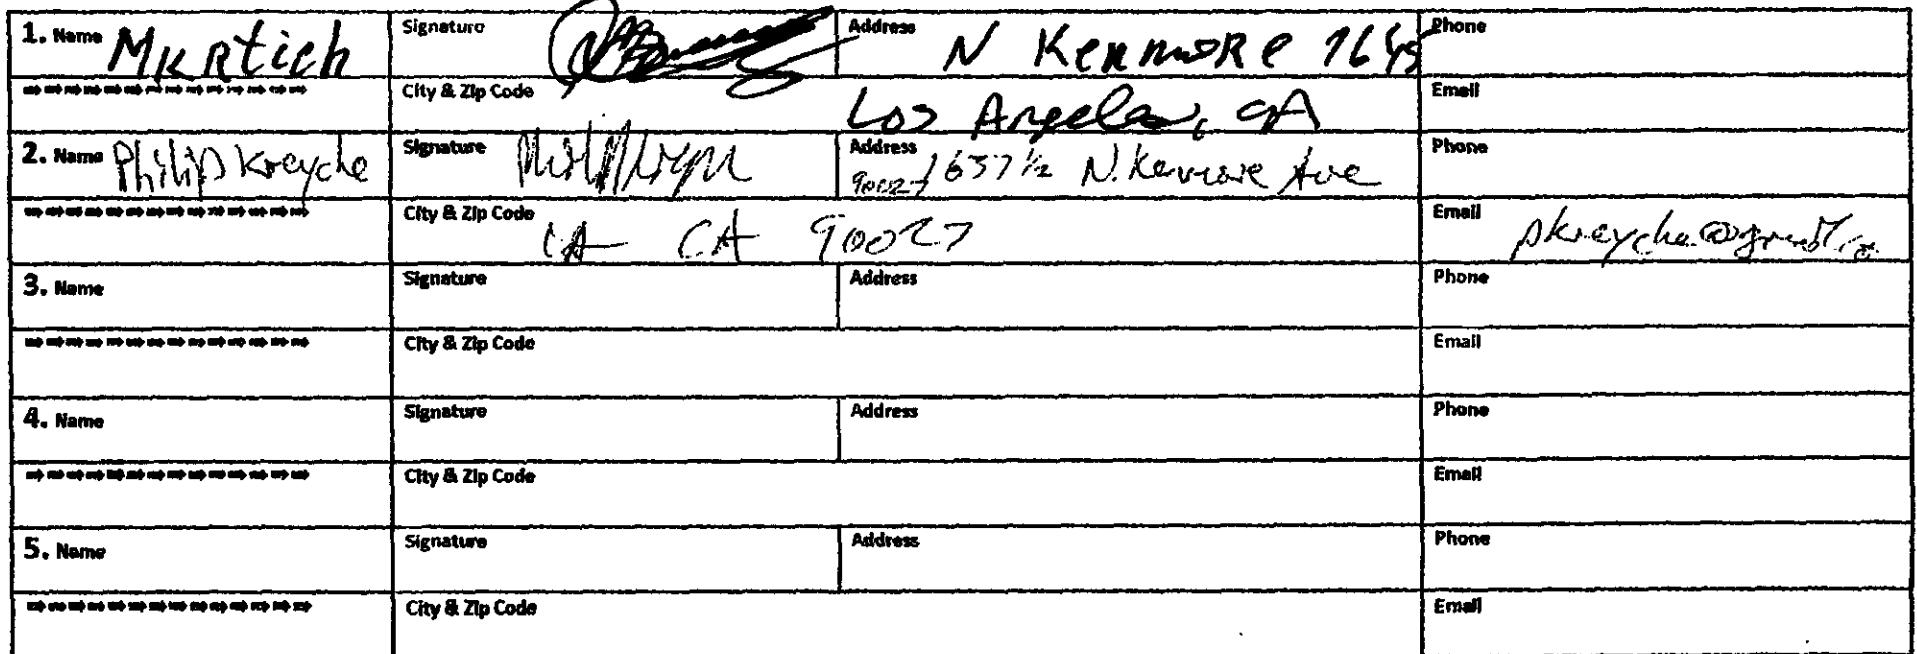 1. Name Mkrtich Signature Address N Kenmore 1645 Phone
City & Zip Code Los Angeles, CA Email
2. Name Philip Kreyche Signature Address 90027 1657 1/2 N. Kenmore Ave Phone
City & Zip Code LA CA 90027 Email pkreyche@gmail.co
3. Name Signature Address Phone
City & Zip Code Email
4. Name Signature Address Phone
City & Zip Code Email
5. Name Signature Address Phone
City & Zip Code Email